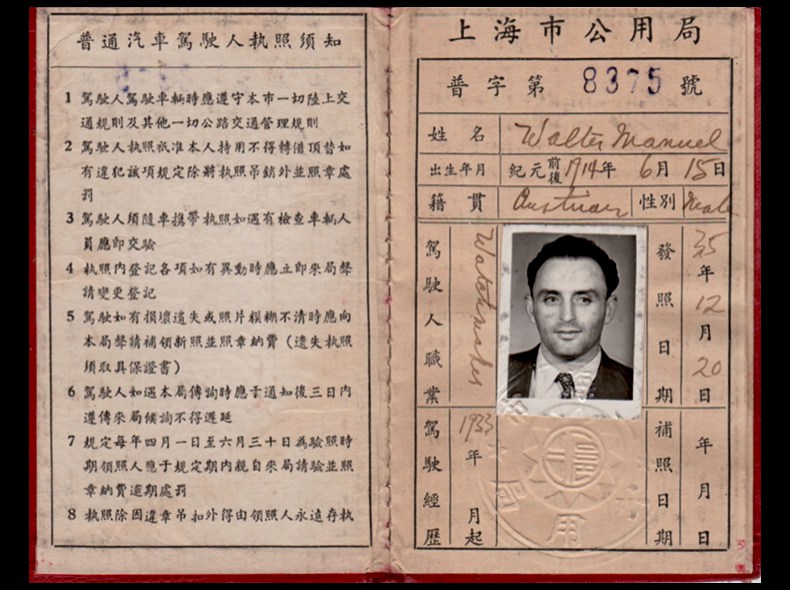 普通汽車駕駛人執照須知
1 駕駛人駕駛車輛時應遵守本市一切陸上交
通規則及其他一切公路交通管理規則
2 駕駛人執照祇准本人持用不得轉借頂替如
有違犯該項規定除將執照吊銷外並照章處
罰
3 駕駛人須隨車携帶執照如遇有檢查車輛人
員應即交驗
4 執照內登記各項如有異動時應立即來局聲
請變更登記
5 駕駛如有損壞遺失或照片模糊不清時應向
本局聲請補領新照並照章納費（遺失執照
須取具保證書）
6 駕駛人如遇本局傳詢時應于通知後三日內
遵傳來局候詢不得遲延
7 規定每年四月一日至六月三十日為驗照時
期領照人應于規定期內親自來局請驗並照
章納費逾期處罰
8 執照除因違章吊扣外得由領照人永遠存執
上海市公用局
普字第 8375 號
姓名 Walter Manuel
出生年月 紀元前後 1914年 6月 15日
籍貫 Austrian 性別 Male
駕駛人職業 Watchmaker
發照日期 35年12月20日
駕駛經歷 1933年 月起
補照日期 年 月 日